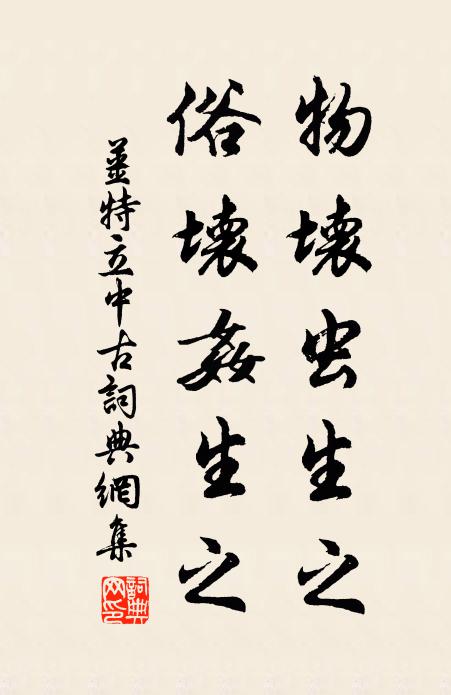 物壞虫生之
俗壞姦生之
姜特立中古詞典網集
詞典網印